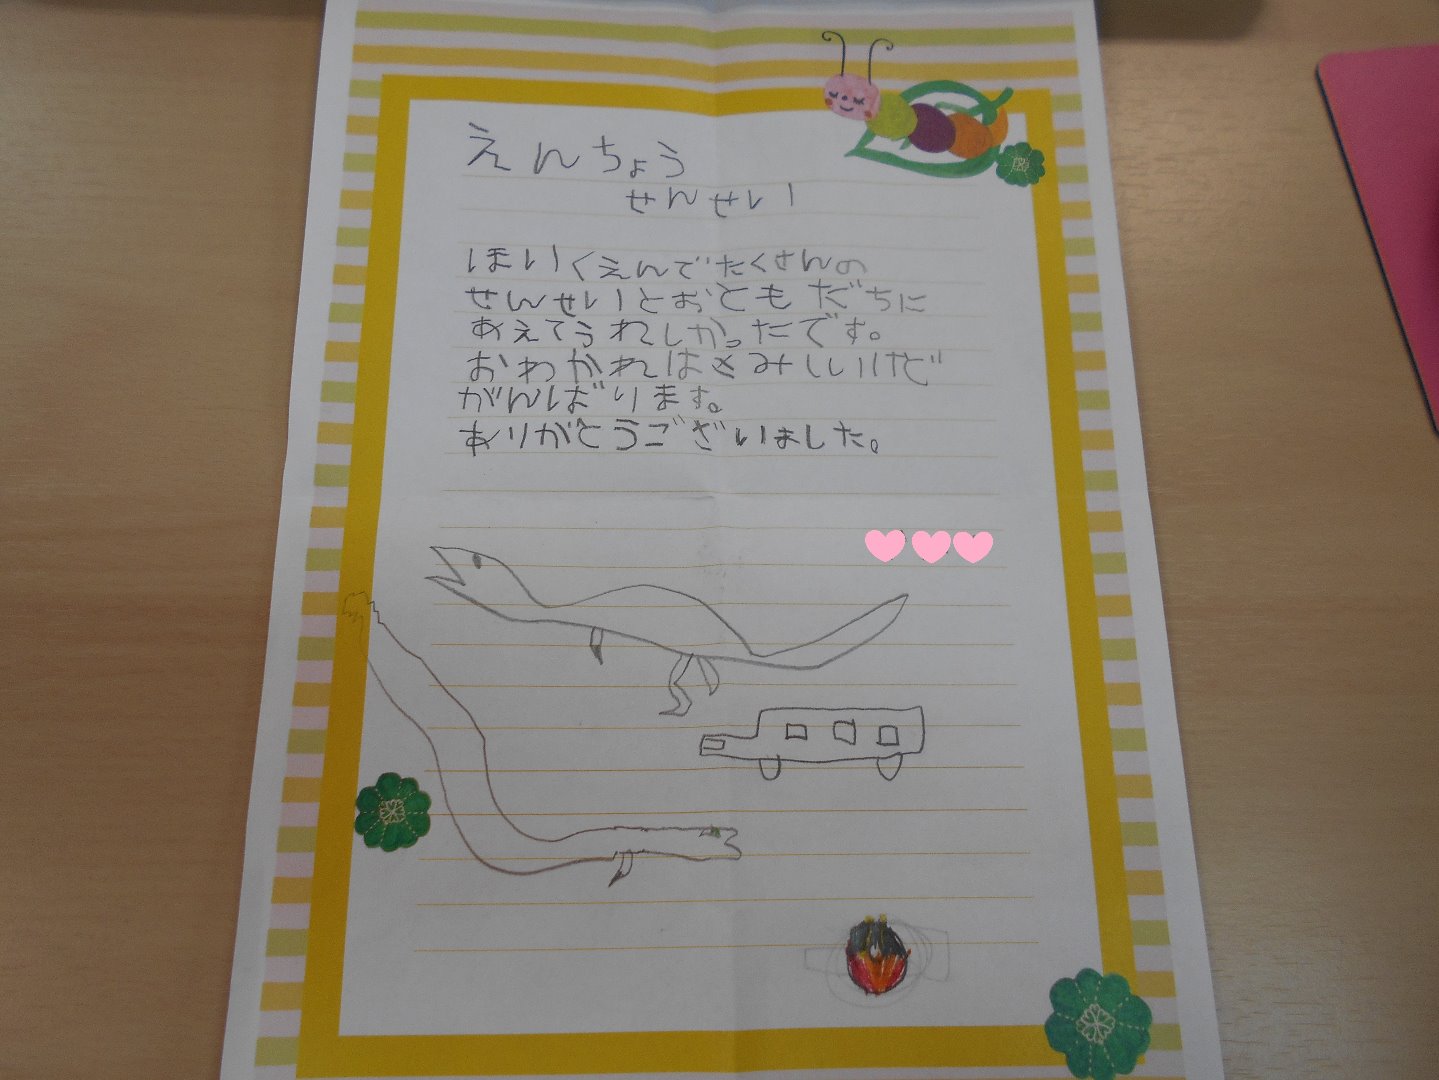 えんちょう
せんせい
ほいくえんでたくさんの
せんせいとおともだちに
あえてうれしかったです。
おわかれはさみしいけど
がんばります。
ありがとうございました。